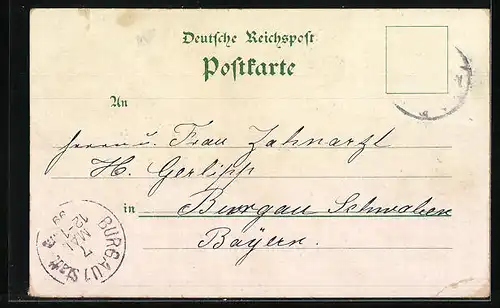 Deutsche Reichspost
Postkarte
An
Herrn u. Frau Zahnarzt
H. Gerlipp
in Burgau Schwaben
Bayern.
BURGAU
7
MAI
12-1
99
Stadt